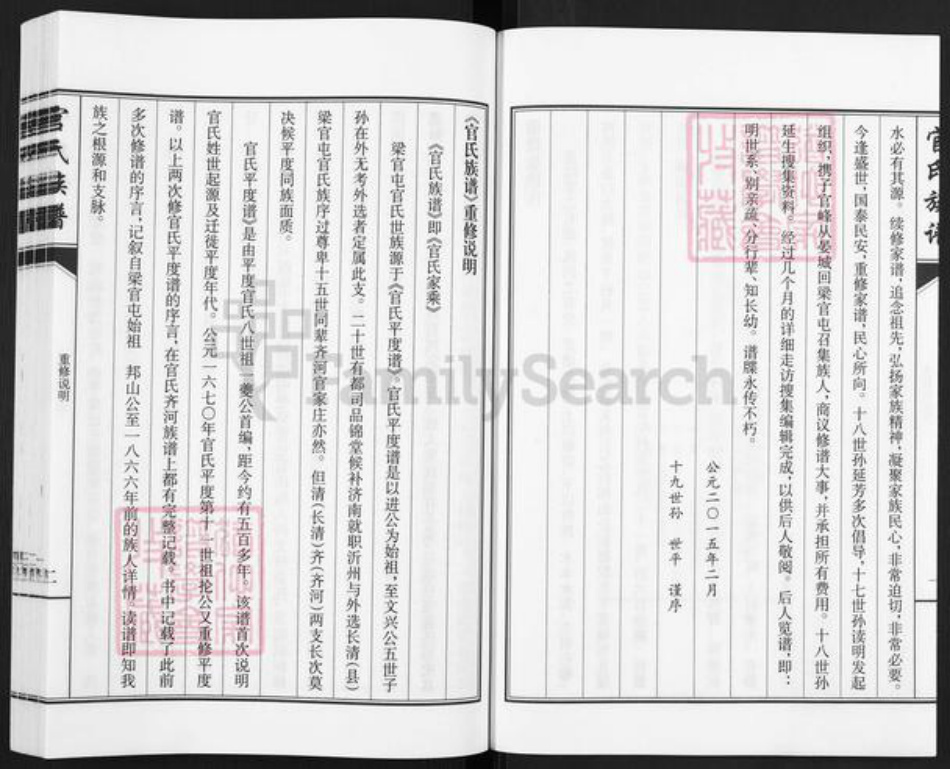 水必有其源。续修家谱,追念祖先,弘扬家族精神,凝聚家族民心,非常迫切,非常必要。
今逢盛世,国泰民安、重修家谱,民心所向。十八世孙延芳多次倡导,十七世孙读明发起
组织,携子官峰从晏城回梁官屯召集族人,商议修谱大事,并承担所有费用。十八世孙
延生搜集资料。经过几个月的详细走访搜集编辑完成,以供后人敬阅。后人览谱,即:
明世系、别亲疏、分行辈、知长幼。谱牒永传不朽。
公元二〇一五年二月
十九世孙 世平 谨序
官氏族谱
《官氏族谱》重修说明
《官氏族谱》即《官氏家乘》
梁官屯官氏世族源于《官氏平度谱》。官氏平度谱是以进公为始祖,至文兴公五世子
孙在外无考外选者定属此支。二十世有都司品锦堂候补济南就职沂州与外选长清(县)
梁官屯官氏族序过尊卑十五世同辈齐河官家庄亦然。但清(长清)齐(齐河)两支长次莫
决候平度同族面质。
官氏平度谱》是由平度官氏八世祖一夔公首编,距今约有五百多年。该谱首次说明
官氏姓世起源及迁徙平度年代。公元一六七〇年官氏平度第十一世祖抡公又重修平度
谱。以上两次修官氏平度谱的序言,在官氏齐河族谱上都有完整记载。书中记载了此前
多次修谱的序言,记叙自梁官屯始祖 邦山公至一八六六年前的族人详情。读谱即知我
族之根源和支脉。
重修说明
官氏族谱
FamilySearch